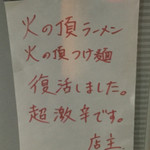 火の頂ラーメン
火の頂つけ麺
復活しました。
超激辛です。
店主